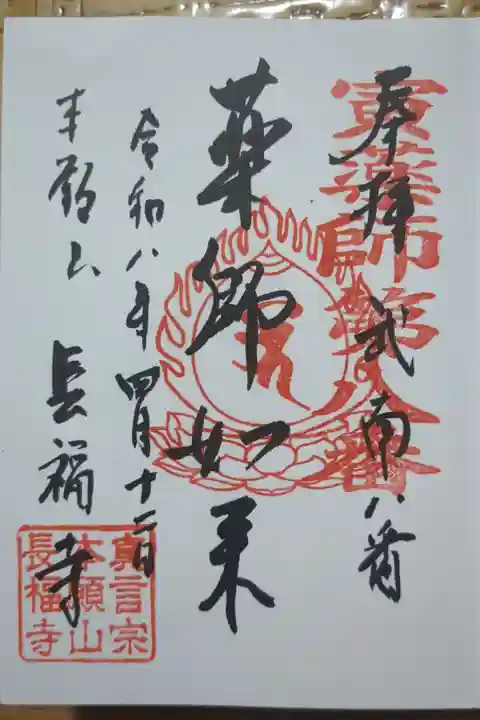 奉拝 武南八番
寅薬師第八番
薬師如来
令和八年四月十二日
本願山 長福寺
真言宗
本願山
長福寺